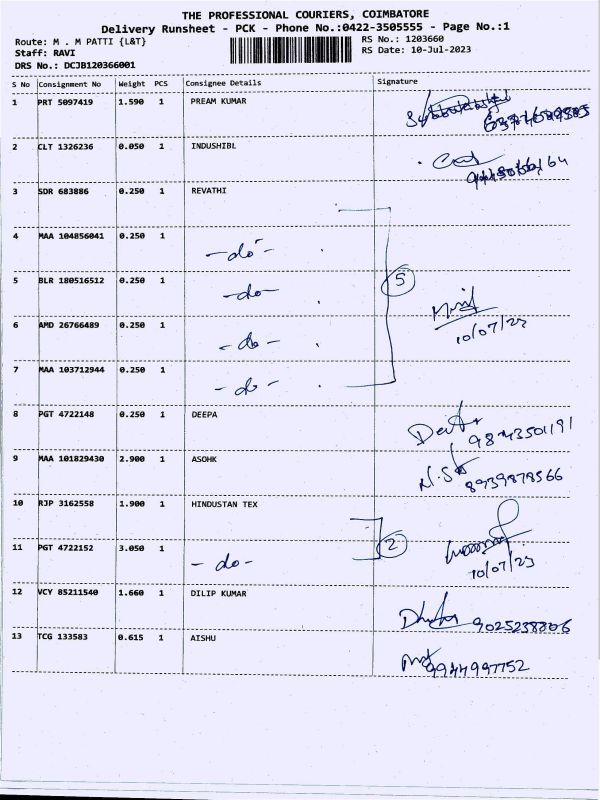 THE PROFESSIONAL COURIERS, COIMBATORE
Delivery Runsheet - PCK - Phone No.:0422-3505555 - Page No.:1
Route: M . M PATTI {L&T}
RS No.: 1203660
Staff: RAVI
RS Date: 10-Jul-2023
DRS No.: DCJB120366001
S No Consignment No Weight PCS Consignee Details Signature
1 PRT 5097419 1.590 1 PREAM KUMAR
2 CLT 1326236 0.050 1 INDUSHIBL
3 SDR 683886 0.250 1 REVATHI
4 MAA 104856041 0.250 1 -do-
5 BLR 180516512 0.250 1 -do- 5
6 AMD 26766489 0.250 1 -do- 10/07/23
7 MAA 103712944 0.250 1 -do-
8 PGT 4722148 0.250 1 DEEPA 9843501191
9 MAA 101829430 2.900 1 ASOHK 8939878566
10 RJP 3162558 1.900 1 HINDUSTAN TEX
11 PGT 4722152 3.050 1 -do- 2 10/07/23
12 VCY 85211540 1.660 1 DILIP KUMAR 9025238806
13 TCG 133583 0.615 1 AISHU 9944997752